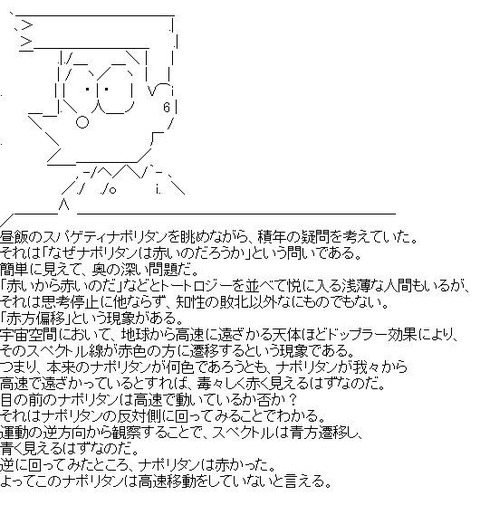 昼飯のスパゲティナポリタンを眺めながら、積年の疑問を考えていた。
それは「なぜナポリタンは赤いのだろうか」という問いである。
簡単に見えて、奥の深い問題だ。
「赤いから赤いのだ」などとトートロジーを並べて悦に入る浅薄な人間もいるが、
それは思考停止に他ならず、知性の敗北以外なにものでもない。
「赤方偏移」という現象がある。
宇宙空間において、地球から高速に遠ざかる天体ほどドップラー効果により、
そのスペクトル線が赤色の方に遷移するという現象である。
つまり、本来のナポリタンが何色であろうとも、ナポリタンが我々から
高速で遠ざかっているとすれば、毒々しく赤く見えるはずなのだ。
目の前のナポリタンは高速で動いているか否か？
それはナポリタンの反対側に回ってみることでわかる。
運動の逆方向から観察することで、スペクトルは青方遷移し、
青く見えるはずなのだ。
逆に回ってみたところ、ナポリタンは赤かった。
よってこのナポリタンは高速移動をしていないと言える。